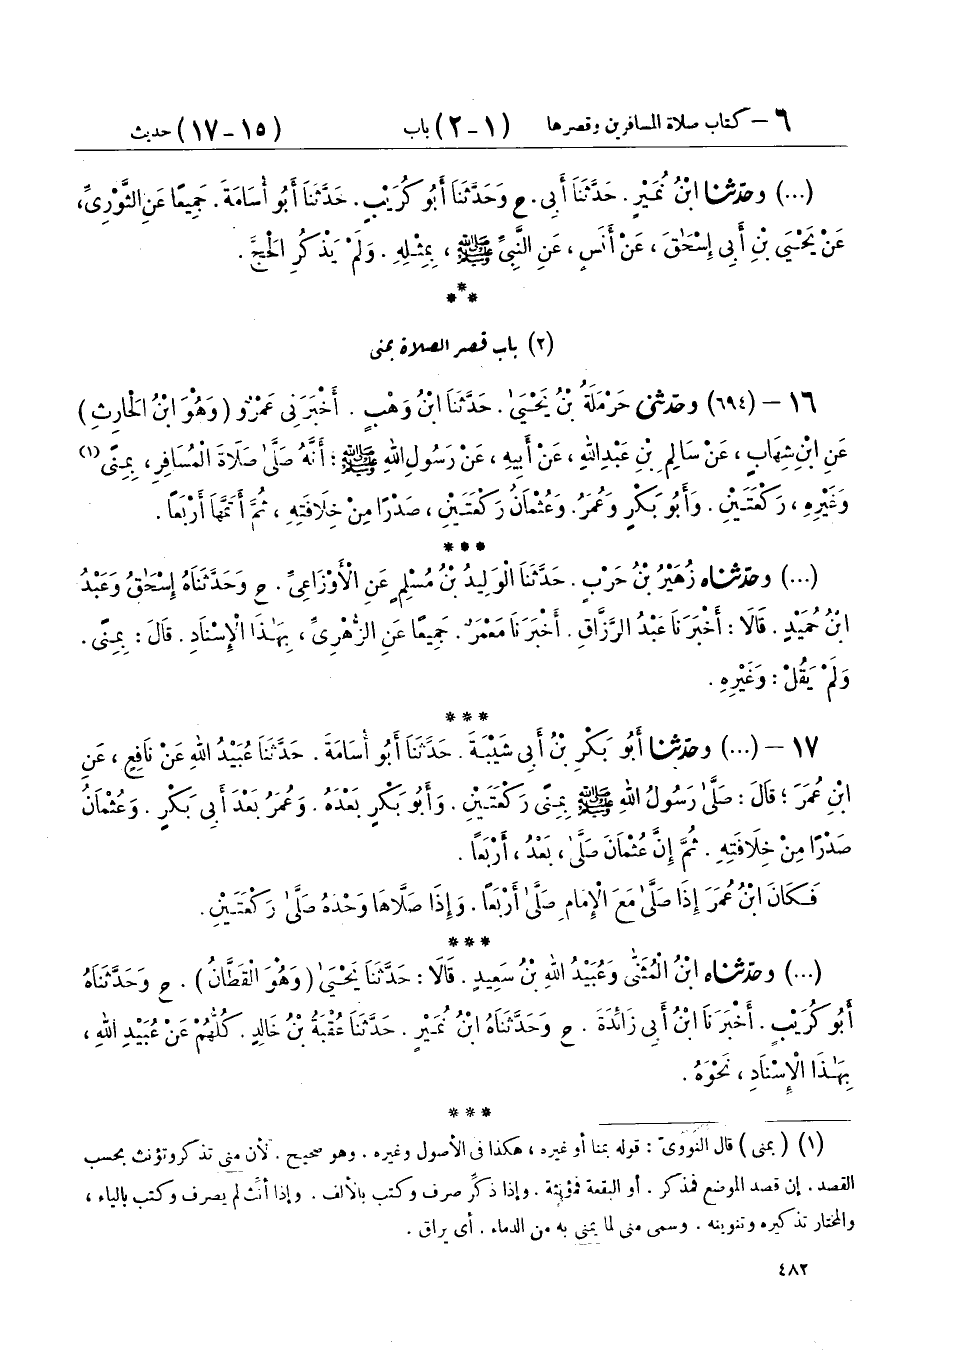 ٦ – كتاب صلاة المسافرين وقصرها (١-٢) باب (١٥-١٧) حديث
(...) وحدّثنا ابْنُ نُمَيْرٍ. حَدَّثَنَا أَبِي. ح وَحَدَّثَنَا أَبُو كُرَيْبٍ. حَدَّثَنَا أَبُو أُسَامَةَ. جَمِيعًا عَنِ الثَّوْرِىِّ،
عَنْ يَحْيَىَ بْنِ أَبِي إِسْحَٰقَ، عَنْ أَنَسٍ، عَنِ النَّبِيِّ ﷺ، بِمِثْلِهِ. وَلَمْ يَذْكُرِ الْحَجَّ.
***
(٢) باب قصر الصلاة بمنى
١٦ – (٦٩٤) وحدّثنى حَرْمَلَةُ بْنُ يَحْيَىٰ. حَدَّثَنَا ابْنُ وَهْبٍ. أَخْبَرَنِى عَمْرٌو (وَهُوَ ابْنُ الْحَارِثِ)
عَنِ ابْنِ شِهَابٍ، عَنْ سَالِمِ بْنِ عَبْدِاللهِ، عَنْ أَبِيهِ، عَنْ رَسُولِ اللهِ ﷺ: أَنَّهُ صَلَّىٰ صَلَاةَ الْمُسَافِرِ، بِمِنًى (١)
وَغَيْرِهِ، رَكْعَتَيْنِ. وَأَبُو بَكْرٍ وَعُمَرُ. وَعُثْمَانُ رَكْعَتَيْنِ، صَدْرًا مِنْ خِلَافَتِهِ، ثُمَّ أَتَمَّهَا أَرْبَعًا.
***
(...) وحدّثناه زُهَيْرُ بْنُ حَرْبٍ. حَدَّثَنَا الْوَلِيدُ بْنُ مُسْلِمٍ عَنِ الْأَوْزَاعِىِّ. ح وَحَدَّثَنَاهُ إِسْحَٰقُ وَعَبْدُ
ابْنُ حُمَيْدٍ. قَالَا: أَخْبَرَنَا عَبْدُ الرَّزَّاقِ. أَخْبَرَنَا مَعْمَرٌ. جَمِيعًا عَنِ الزُّهْرِىِّ، بِهَٰذَا الْإِسْنَادِ. قَالَ: بِمِنًى.
وَلَمْ يَقُلْ: وَغَيْرِهِ.
***
١٧ – (...) وحدّثنا أَبُو بَكْرِ بْنُ أَبِي شَيْبَةَ. حَدَّثَنَا أَبُو أُسَامَةَ. حَدَّثَنَا عُبَيْدُ اللهِ عَنْ نَافِعٍ، عَنِ
ابْنِ عُمَرَ؛ قَالَ: صَلَّىٰ رَسُولُ اللهِ ﷺ بِمِنًى رَكْعَتَيْنِ. وَأَبُو بَكْرٍ بَعْدَهُ. وَعُمَرُ بَعْدَ أَبِي بَكْرٍ. وَعُثْمَانُ
صَدْرًا مِنْ خِلَافَتِهِ. ثُمَّ إِنَّ عُثْمَانَ صَلَّىٰ، بَعْدُ، أَرْبَعًا.
فَكَانَ ابْنُ عُمَرَ إِذَا صَلَّىٰ مَعَ الْإِمَامِ صَلَّىٰ أَرْبَعًا. وَإِذَا صَلَّاهَا وَحْدَهُ صَلَّىٰ رَكْعَتَيْنِ.
***
(...) وحدّثناه ابْنُ الْمُثَنَّىٰ وَعُبَيْدُ اللهِ بْنُ سَعِيدٍ. قَالَا: حَدَّثَنَا يَحْيَىٰ (وَهُوَ الْقَطَّانُ). ح وَحَدَّثَنَاهُ
أَبُو كُرَيْبٍ. أَخْبَرَنَا ابْنُ أَبِي زَائِدَةَ. ح وَحَدَّثَنَاهُ ابْنُ نُمَيْرٍ. حَدَّثَنَا عُقْبَةُ بْنُ خَالِدٍ. كُلُّهُمْ عَنْ عُبَيْدِ اللهِ،
بِهَٰذَا الْإِسْنَادِ، نَحْوَهُ.
***
(١) (بمنى) قال النَّوَوِىّ: قوله بمنا أو غيره، هكذا فى الأصول وغيره. وهو صحيح. لأن منى تذكر وتؤنث بحسب
القصد. إن قصد الموضع فمذكر. أو البقعة فمؤنثة. وإذا ذكّر صرف وكتب بالألف. وإذا أنّث لم يصرف وكتب بالياء،
والمختار تذكيره وتنوينه. وسمى منى لما يمنى به من الدماء. أى يراق.
٤٨٢